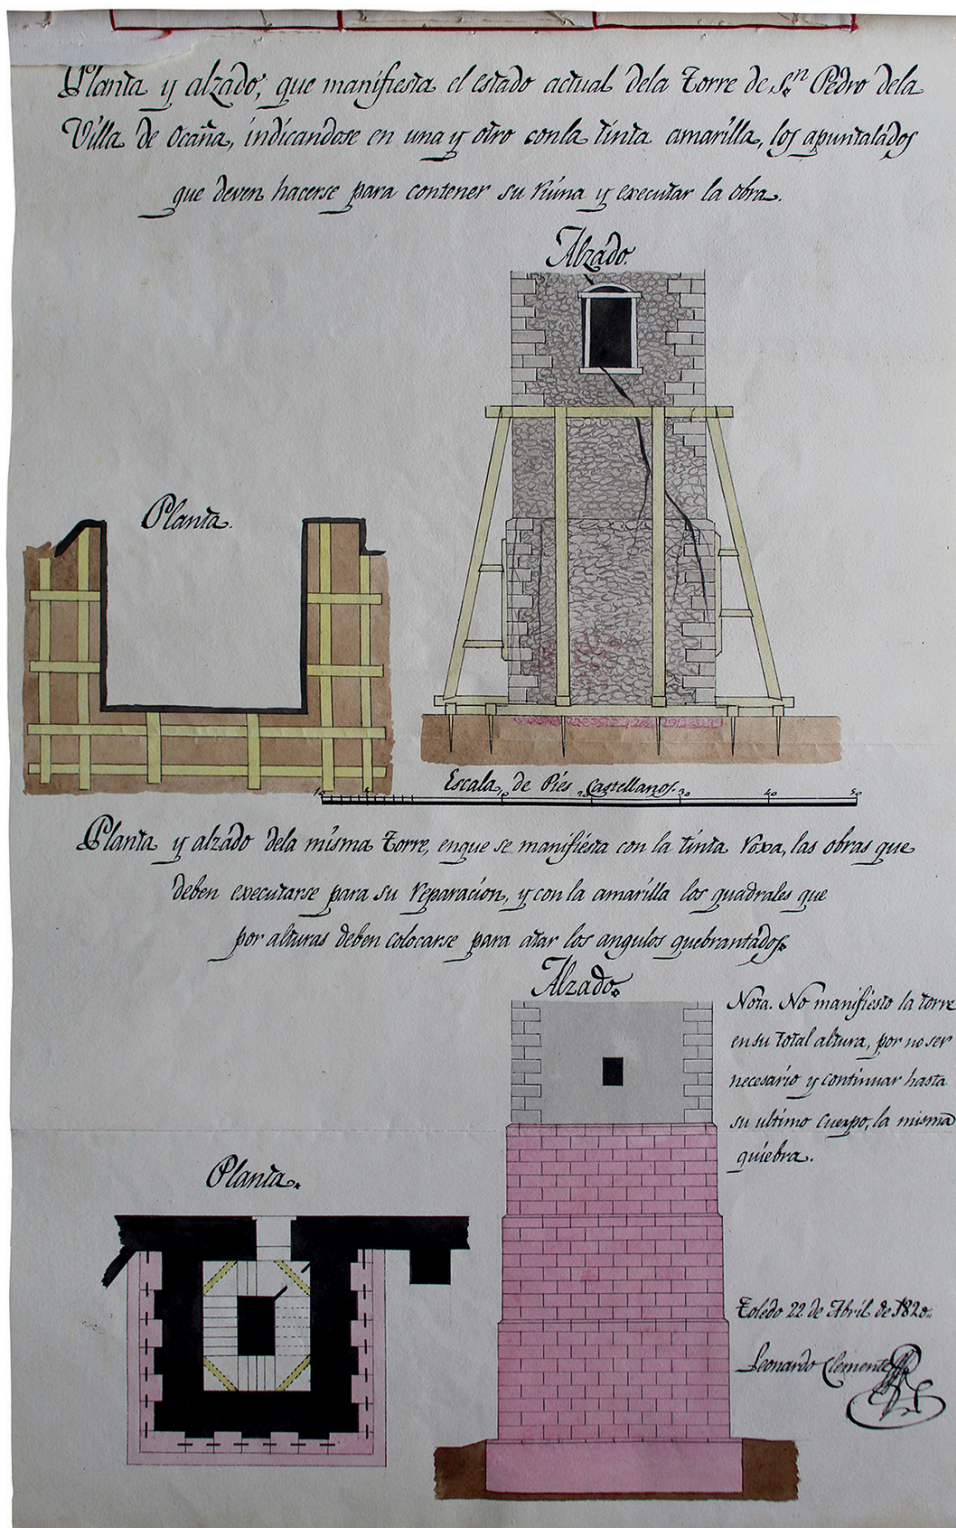 Planta y alzado, que manifiesta el estado actual dela Torre de Sn. Pedro dela
Villa de Ocaña, indicandose en una y otro conla tinta amarilla, los apuntalados
que deven hacerse para contener su ruina y executar la obra.
Alzado.
Planta.
Escala de Pies Castellanos.
10 5 10 20 30 40 50
Planta y alzado dela misma Torre, enque se manifiesta con la tinta roxa, las obras que
deben executarse para su reparacion, y con la amarilla los quadrales que
por alturas deben colocarse para atar los angulos quebrantados.
Alzado.
Nota. No manifiesto la torre
en su total altura, por no ser
necesario y continuar hasta
su ultimo cuerpo, la misma
quiebra.
Planta.
Toledo 22 de Abril de 1820.
Leonardo Clemente